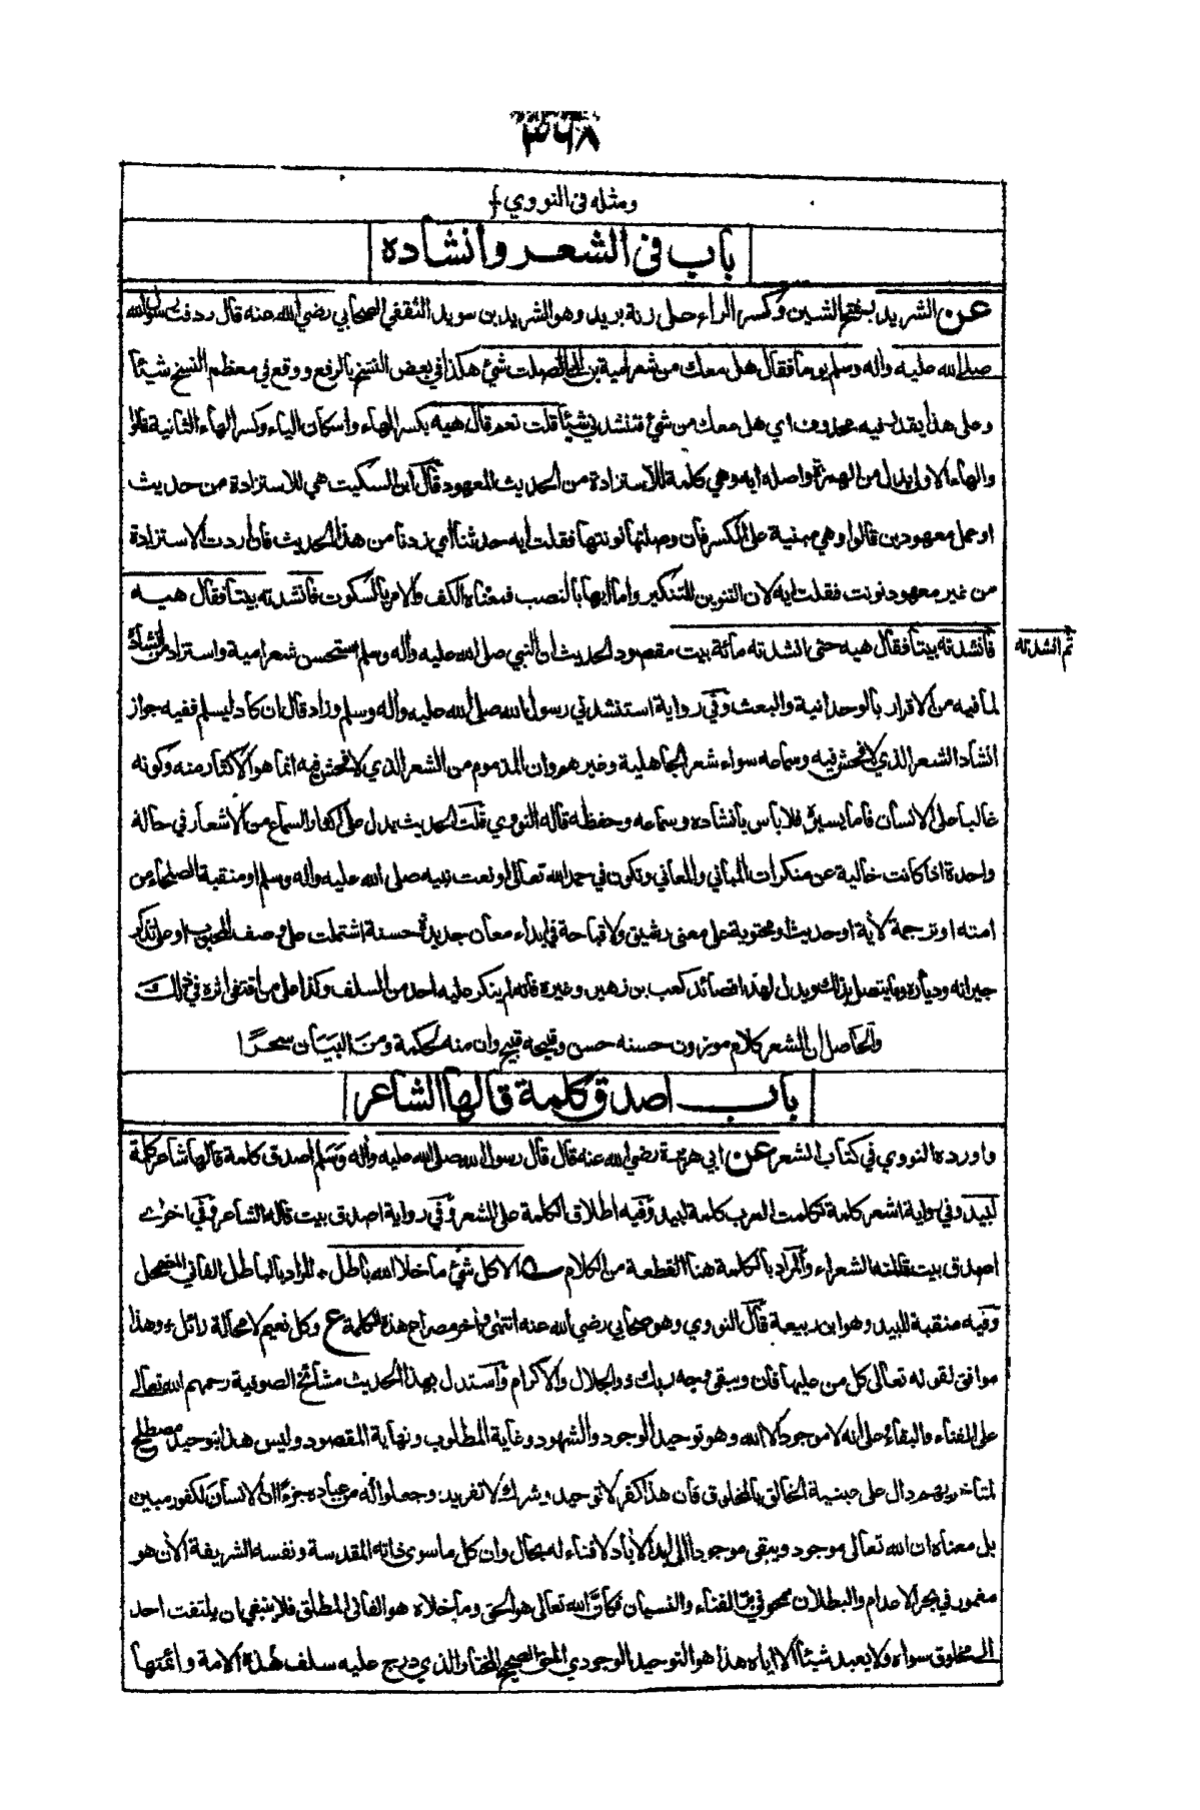 ٣٦٨
ومثله في النووي
باب في الشعر وانشاده
عن الشريد بفتح الشين وكسر الراء على زنة بريد وهو الشريد بن سويد الثقفي الصحابي رضي الله عنه قال ردفت رسول الله
صلى الله عليه واله وسلم يوما فقال هل معك من شعر امية بن ابي الصلت شئ هكذا في بعض النسخ بالرفع ووقع في معظم النسخ شيئا
وعلى هذا يقدر فيه محذوف اي هل معك من شئ فتنشدني شيئا قلت نعم قال هيه بكسر الهاء واسكان الياء وكسر الهاء الثانية قالوا
والهاء الاولى بدل من الهمزة واصله ايه وهي كلمة للاستزادة من الحديث المعهود قال ابن السكيت هي للاستزادة من حديث
او عمل معهودين قالوا وهي مبنية على الكسر فان وصلتها نونتها فقلت ايه حدثنا اي زدنا من هذا الحديث فان اردت الاستزادة
من غير معهود نونت فقلت ايه لان التنوين للتنكير واما ايها بالنصب فمعناه الكف والامر بالسكوت فانشدته بيتا فقال هيه
ثم انشدته
فانشدته بيتا فقال هيه حتى انشدته مائة بيت مقصود الحديث ان النبي صلى الله عليه واله وسلم استحسن شعر امية واستزاد من انشاده
لما فيه من الاقرار بالوحدانية والبعث وفي رواية استنشدني رسول الله صلى الله عليه واله وسلم وزاد قال ان كاد ليسلم ففيه جواز
انشاد الشعر الذي لا فحش فيه وسماعه سواء شعر الجاهلية وغيرهم وان المذموم من الشعر الذي لا فحش فيه انما هو الاكثار منه وكونه
غالبا على الانسان فاما يسيره فلا باس بانشاده وسماعه وحفظه قاله النووي قلت الحديث يدل على السماع من الاشعار في حالة
واحدة اذا كانت خالية عن منكرات المباني والمعاني وتكون في حمد الله تعالى او نعت نبيه صلى الله عليه واله وسلم او منقبة الصلحاء من
امته او ترجمة لآية او حديث او محتوية على معنى رشيق ولا قباحة في ابداء معان جديدة حسنة اشتملت على وصف المحبوب او على تذكار
جيرانه ودياره وما يتصل بذلك ويدل لهذا قصائد كعب بن زهير وغيره فانه لم ينكر عليه احد من السلف وكذا على من اقتفى اثره في ذلك
والحاصل ان الشعر كلام موزون حسنه حسن وقبيحه قبيح وان منه لحكمة ومن البيان سحرا
باب اصدق كلمة قالها الشاعر
واورده النووي في كتاب الشعر عن ابي هريرة رضي الله عنه قال قال رسول الله صلى الله عليه واله وسلم اصدق كلمة قالها شاعر كلمة
لبيد وفي رواية اشعر كلمة تكلمت العرب كلمة لبيد وفيه اطلاق الكلمة على الشعر وفي رواية اصدق بيت قاله الشاعر وفي اخرى
اصدق بيت قالته الشعراء والمراد بالكلمة هنا القطعة من الكلام الا كل شئ ما خلا الله باطل المراد بالباطل الفاني المضمحل
وفيه منقبة للبيد وهو ابن ربيعة قال النووي وهو صحابي رضي الله عنه انتهى واخر مصراع هذه الكلمة ع وكل نعيم لا محالة زائل وهذا
موافق لقوله تعالى كل من عليها فان ويبقى وجه ربك ذو الجلال والاكرام واستدل بهذا الحديث مشائخ الصوفية رحمهم الله تعالى
على الفناء والبقاء وعلى انه لا موجود الا الله وهو توحيد الوجود والشهود وغاية المطلوب ونهاية المقصود وليس هذا بتوحيد مصطلح
لمتاخريهم دال على عينية الخالق بالمخلوق فان هذا كفر لا توحيد وشرك لا تفريد وجعلوا له من عباده جزءا ان الانسان لكفور مبين
بل معناه ان الله تعالى موجود ويبقى موجودا الى ابد الاباد لا فناء له بحال وان كل ما سوى ذاته المقدسة ونفسه الشريفة الان هو
مغمور في بحر الاعدام والبطلان محو في الفناء والنسيان فكان الله تعالى هو الحق وما خلاه هو الفاني المطلق فلا ينبغي ان يلتفت احد
الى مخلوق سواه ولا يعبد شيئا الا اياه هذا هو التوحيد الوجودي الحق الصحيح المختار الذي درج عليه سلف هذه الامة وائمتها